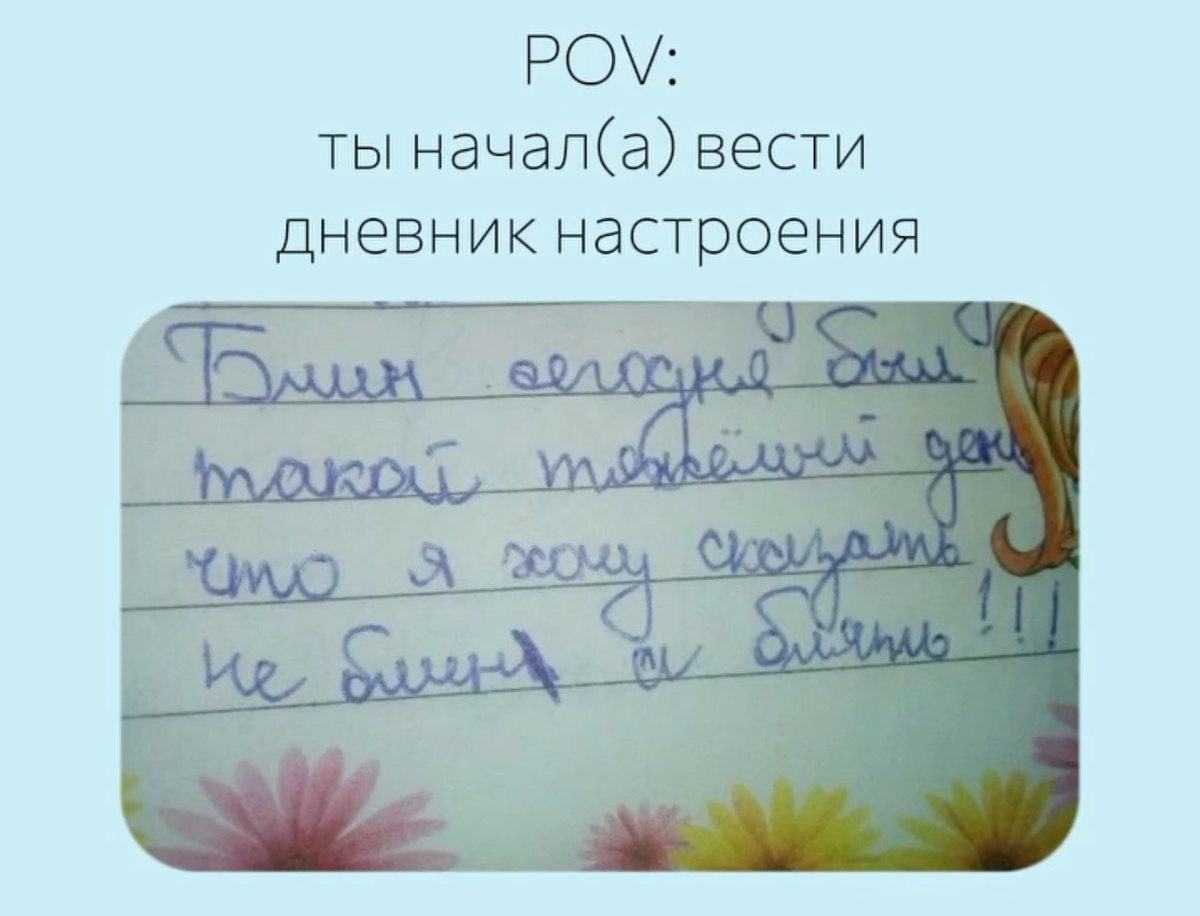 POV:
ты начал(а) вести
дневник настроения
Блин сегодня был
такой тяжёлый день
что я хочу сказать
не блин а блять!!!